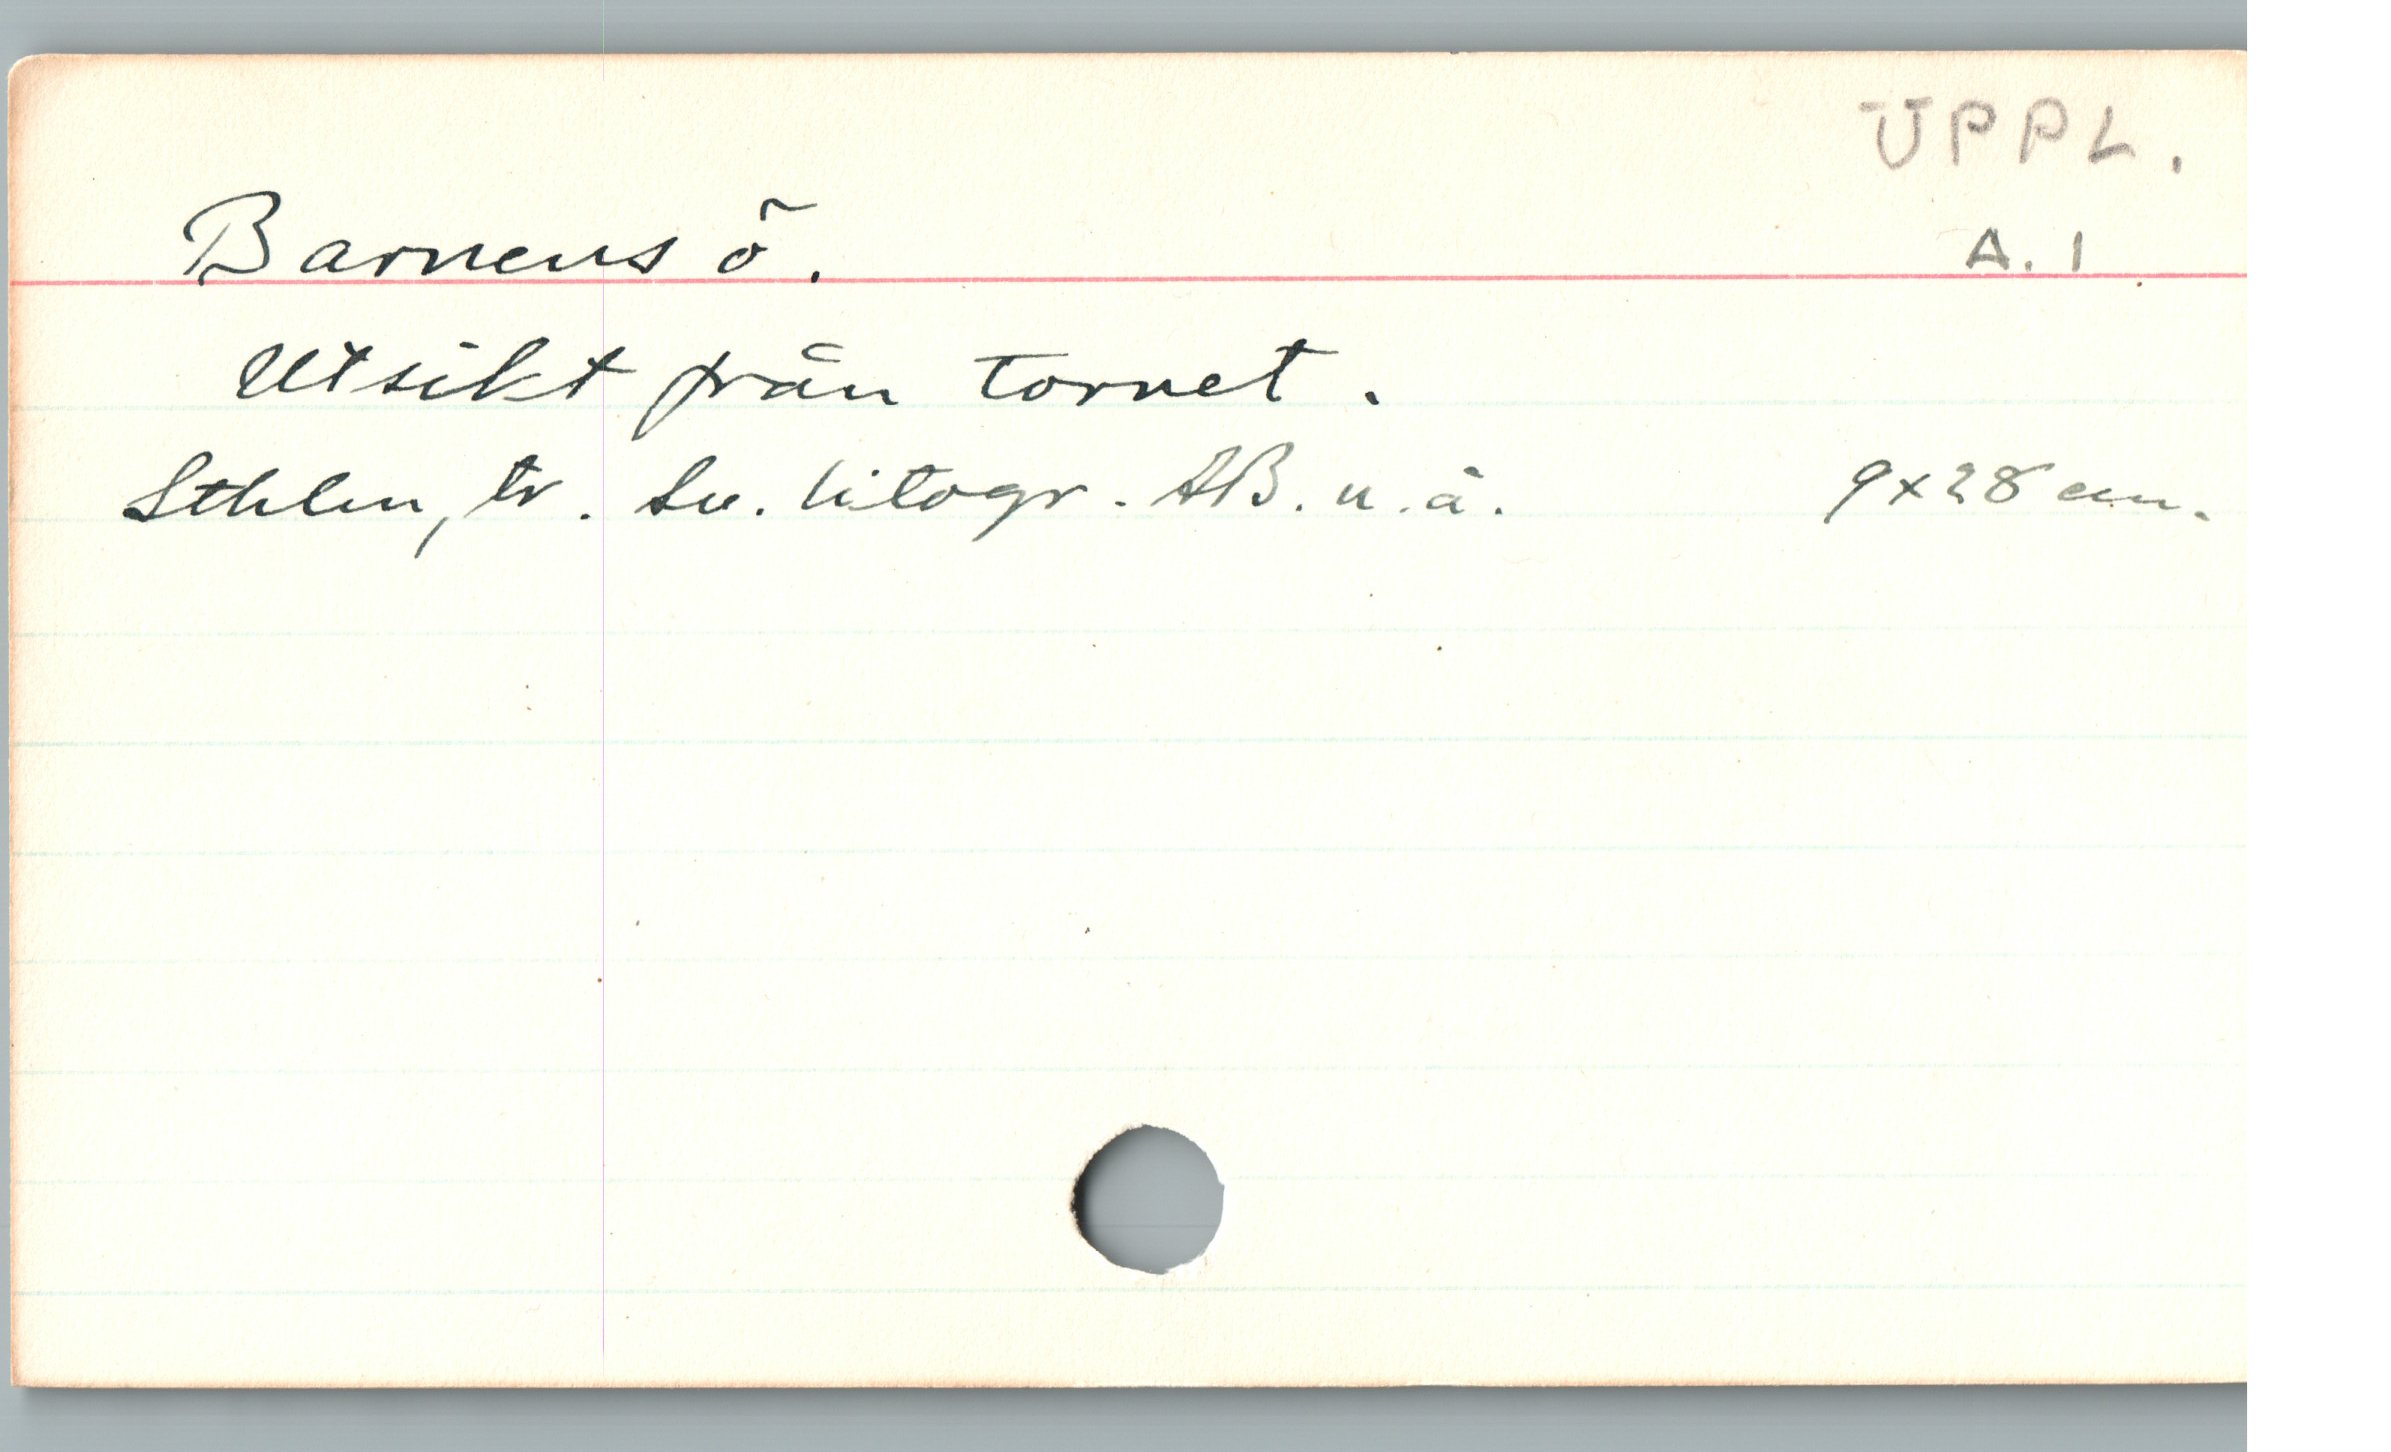 UPPL.
Barnens ö. A. 1
Utsikt från tornet.
Sthlm, tr. Sv. litogr. AB. u.å. 9x28 cm.